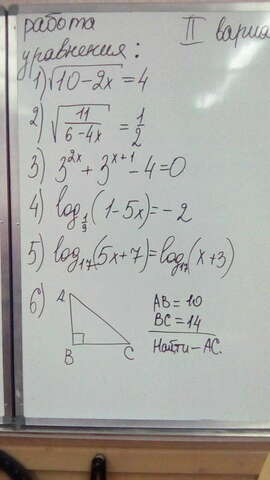 работа
уравнения:
II вариа
1) √(10-2x) = 4
2) √(11/(6-4x)) = 1/2
3) 3^(2x) + 3^(x+1) - 4 = 0
4) log_(1/9) (1-5x) = -2
5) log_17 (5x+7) = log_17 (x+3)
6) A
B C
AB = 10
BC = 14
Найти - AC.